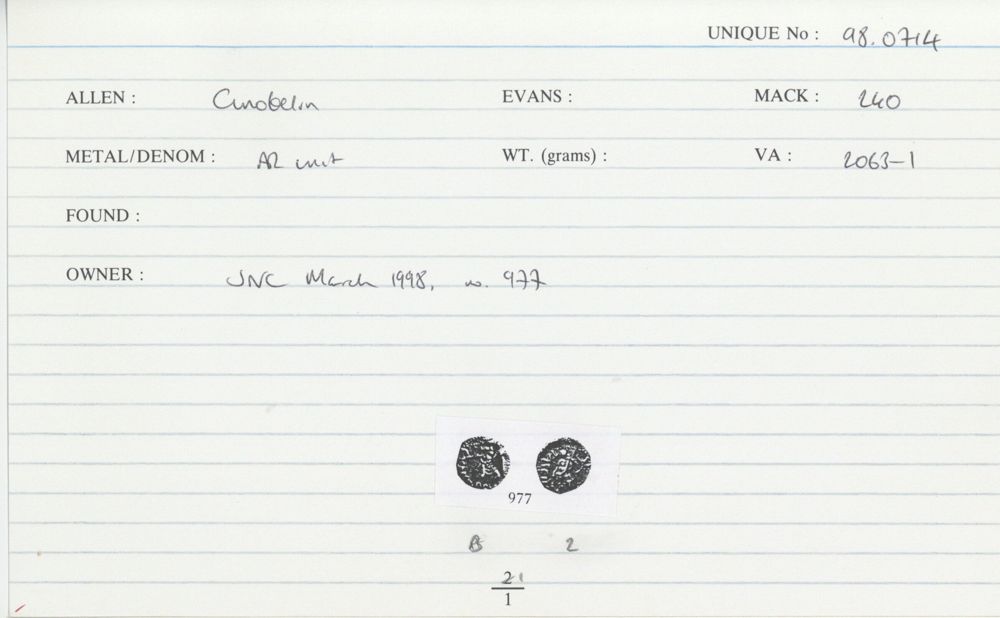 UNIQUE No : 98.0714
ALLEN : Cunobelin EVANS : MACK : 240
METAL/DENOM : AR unit WT. (grams) : VA : 2063-1
FOUND :
OWNER : JNC March 1998, no. 977
977
B 2
21
1